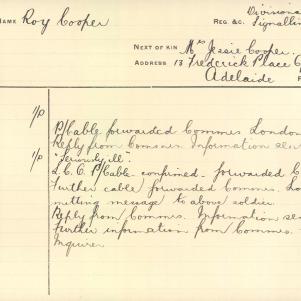 NAME Roy Cooper
Divisiona
REG &C. Signallin
NEXT OF KIN Mrs Jessie Cooper,
ADDRESS 13 Frederick Place
Adelaide
P/Cable forwarded Commrs London
Reply from Commrs Information
"Seriously ill".
P/Cable confirmed - forwarded C
Further cable forwarded Commrs. Lo
mitting message to above soldier.
Reply from Commrs. Information
Further information from Commrs.
Inquirer